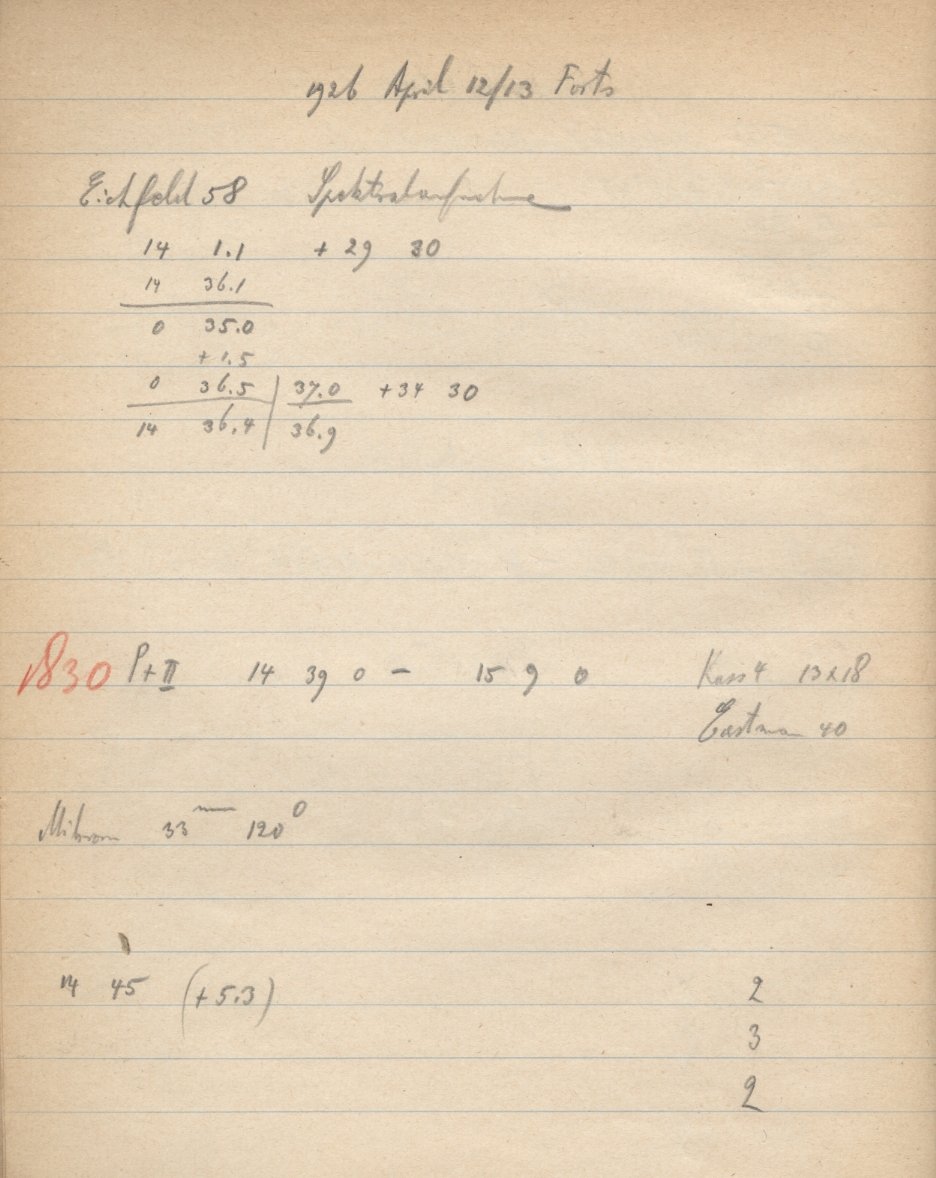 1926 April 12/13 Forts
Eichfeld 58 Spektralaufnahme
14 1.1 + 29 30
14 36.1
0 35.0
+ 1.5
0 36.5 | 37.0 + 34 30
14 36.4 | 36.9
1830 P+II 14 39 0 – 15 9 0 Kass 4 13x18
Eastman 40
Mikrom 33 mm 120°
14 45 (+ 5.3) 2
3
2